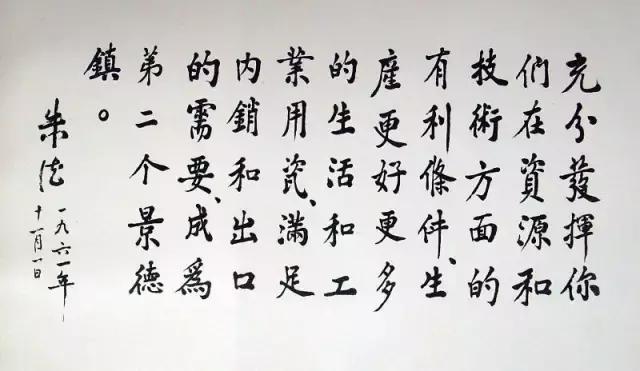 充分發揮你
们在資源和
技術方面的
有利條件、生
產更好更多
的生活和工
業用瓷、滿足
内銷和出口
的需要、成為
第二个景德
鎮。
朱德
一九六一年
十一月一日